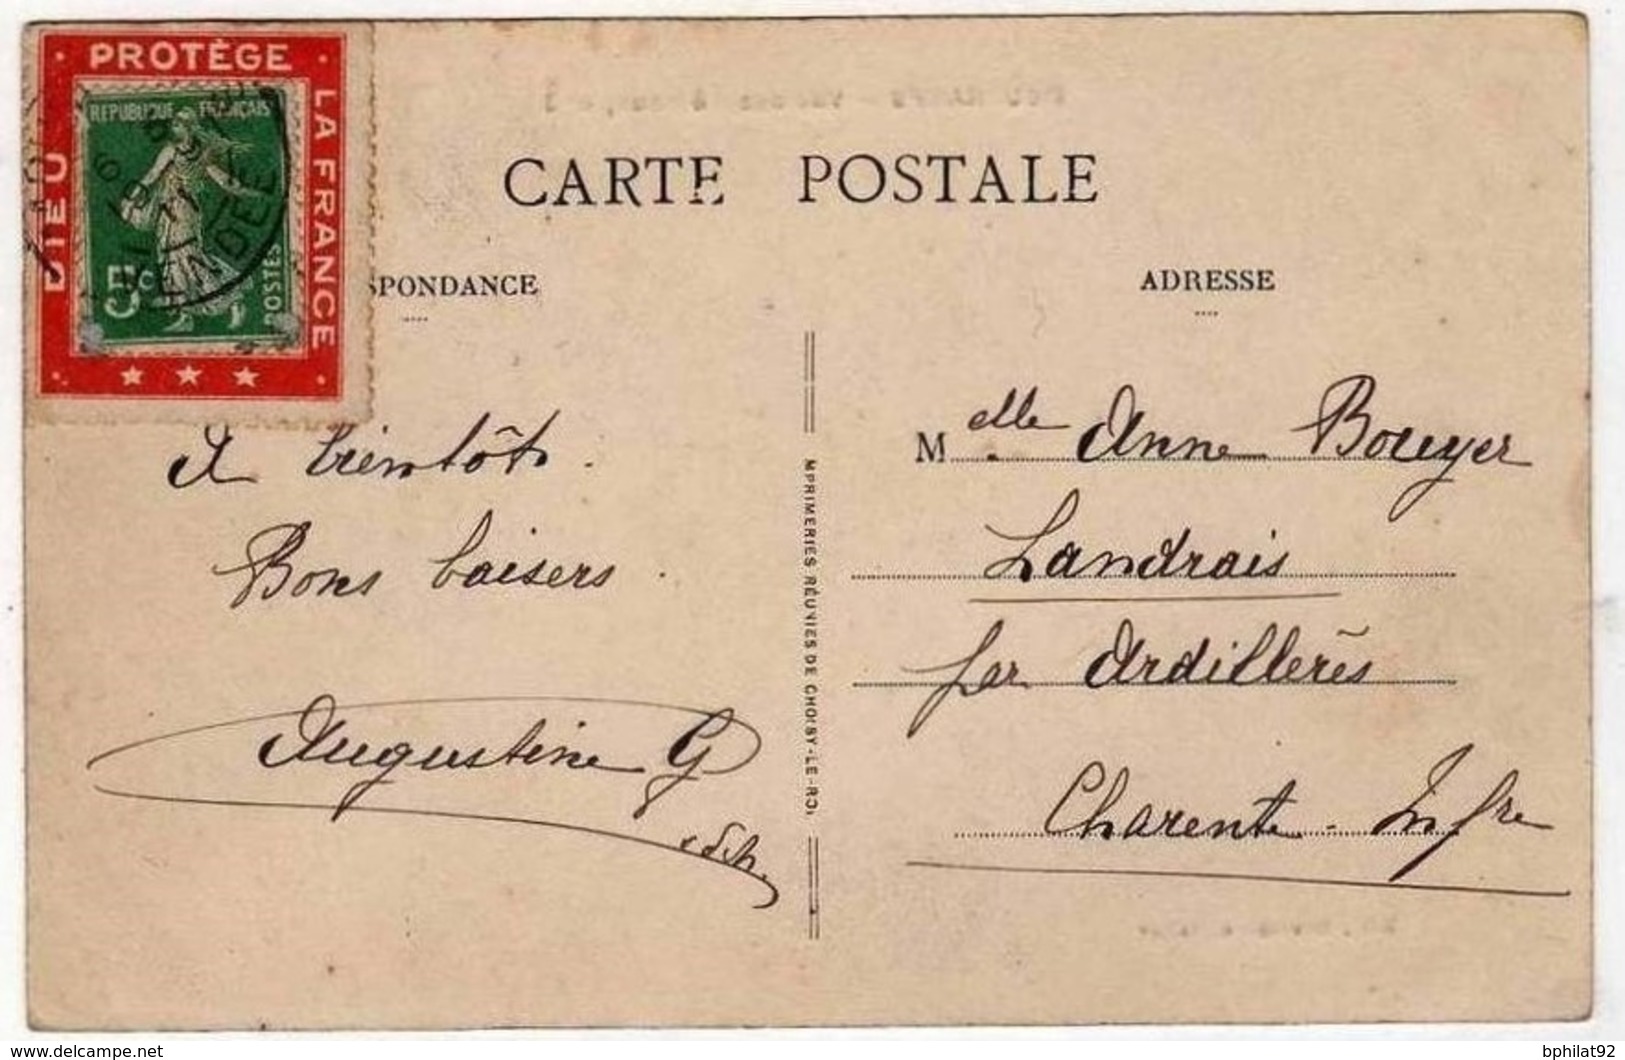 DIEU PROTÈGE LA FRANCE
REPUBLIQUE FRANÇAISE
5c
POSTES
VENDEE
CARTE POSTALE
SPONDANCE
ADRESSE
A bientôt.
Bons baisers.
Augustine G
MPRIMERIES RÉUNIES DE CHOISY-LE-ROI
Melle Anne Bouyer
Landrais
par Ardillères
Charente-Infre
www.delcampe.net
bphilat92